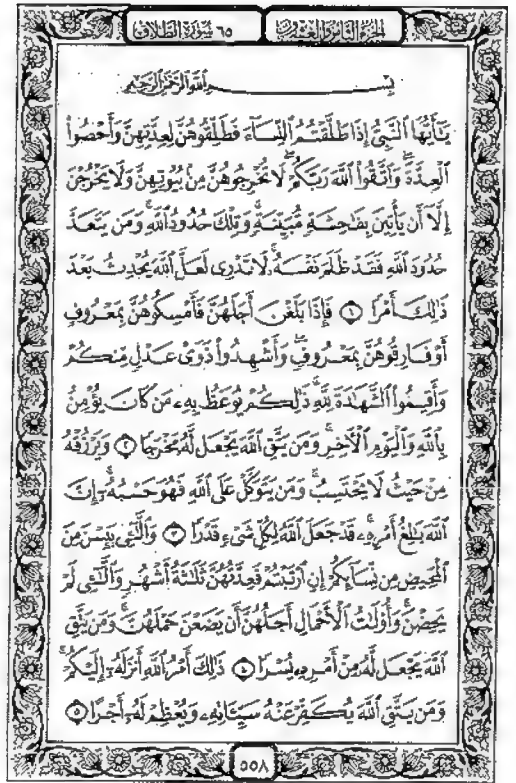 الجزء الثامن والعشرون ٦٥ سورة الطلاق
بِسْمِ اللَّهِ الرَّحْمَٰنِ الرَّحِيمِ
يَٰٓأَيُّهَا ٱلنَّبِىُّ إِذَا طَلَّقْتُمُ ٱلنِّسَآءَ فَطَلِّقُوهُنَّ لِعِدَّتِهِنَّ وَأَحْصُوا۟
ٱلْعِدَّةَ ۖ وَٱتَّقُوا۟ ٱللَّهَ رَبَّكُمْ ۖ لَا تُخْرِجُوهُنَّ مِنۢ بُيُوتِهِنَّ وَلَا يَخْرُجْنَ
إِلَّآ أَن يَأْتِينَ بِفَٰحِشَةٍ مُّبَيِّنَةٍ ۚ وَتِلْكَ حُدُودُ ٱللَّهِ ۚ وَمَن يَتَعَدَّ
حُدُودَ ٱللَّهِ فَقَدْ ظَلَمَ نَفْسَهُۥ ۚ لَا تَدْرِى لَعَلَّ ٱللَّهَ يُحْدِثُ بَعْدَ
ذَٰلِكَ أَمْرًا ١ فَإِذَا بَلَغْنَ أَجَلَهُنَّ فَأَمْسِكُوهُنَّ بِمَعْرُوفٍ
أَوْ فَارِقُوهُنَّ بِمَعْرُوفٍ وَأَشْهِدُوا۟ ذَوَىْ عَدْلٍ مِّنكُمْ
وَأَقِيمُوا۟ ٱلشَّهَٰدَةَ لِلَّهِ ۚ ذَٰلِكُمْ يُوعَظُ بِهِۦ مَن كَانَ يُؤْمِنُ
بِٱللَّهِ وَٱلْيَوْمِ ٱلْءَاخِرِ ۚ وَمَن يَتَّقِ ٱللَّهَ يَجْعَل لَّهُۥ مَخْرَجًا ٢ وَيَرْزُقْهُ
مِنْ حَيْثُ لَا يَحْتَسِبُ ۚ وَمَن يَتَوَكَّلْ عَلَى ٱللَّهِ فَهُوَ حَسْبُهُۥٓ ۚ إِنَّ
ٱللَّهَ بَٰلِغُ أَمْرِهِۦ ۚ قَدْ جَعَلَ ٱللَّهُ لِكُلِّ شَىْءٍ قَدْرًا ٣ وَٱلَّٰٓـِٔى يَئِسْنَ مِنَ
ٱلْمَحِيضِ مِن نِّسَآئِكُمْ إِنِ ٱرْتَبْتُمْ فَعِدَّتُهُنَّ ثَلَٰثَةُ أَشْهُرٍ وَٱلَّٰٓـِٔى لَمْ
يَحِضْنَ ۚ وَأُو۟لَٰتُ ٱلْأَحْمَالِ أَجَلُهُنَّ أَن يَضَعْنَ حَمْلَهُنَّ ۚ وَمَن يَتَّقِ
ٱللَّهَ يَجْعَل لَّهُۥ مِنْ أَمْرِهِۦ يُسْرًا ٤ ذَٰلِكَ أَمْرُ ٱللَّهِ أَنزَلَهُۥٓ إِلَيْكُمْ ۚ
وَمَن يَتَّقِ ٱللَّهَ يُكَفِّرْ عَنْهُ سَيِّـَٔاتِهِۦ وَيُعْظِمْ لَهُۥٓ أَجْرًا ٥
٥٥٨